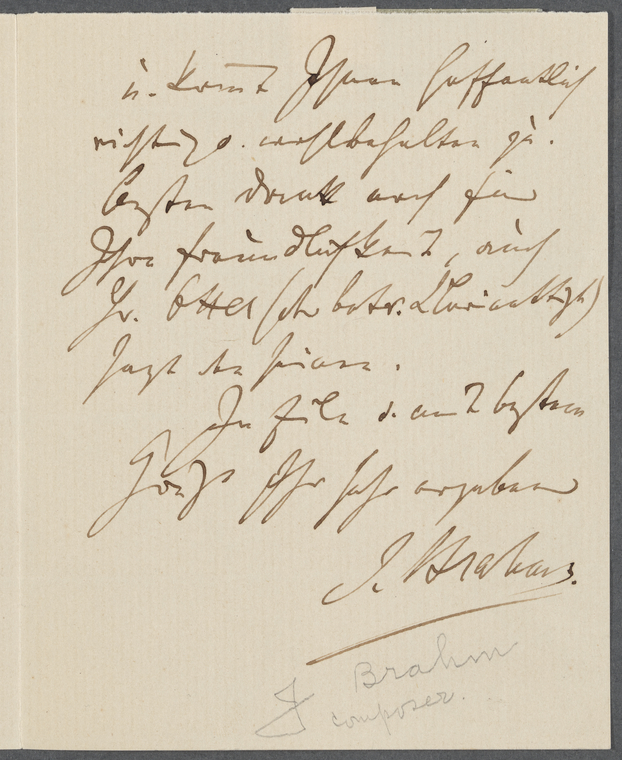 u. kom̄t Ihnen hoffentlich
richtig u. wohlbehalten zu.
Besten Dank auch für
Ihre Freundlichkeit, auch
Hr. Ottel (der betr. Clarinettist)
sagt den seinen.
In Eile u. mit bestem
Gruß Ihr sehr ergebener
J. Brahms.
J Brahm
composer.